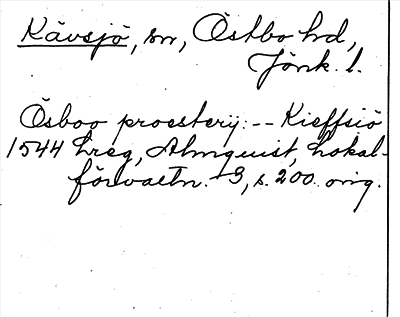 Kävsjö, sn, Östbo hd,
Jönk. l.
Ösboo proesterij: -- Kieffsiö
1544 hreg, Almquist, Lokal-
förvaltn. 3, s. 200. orig.